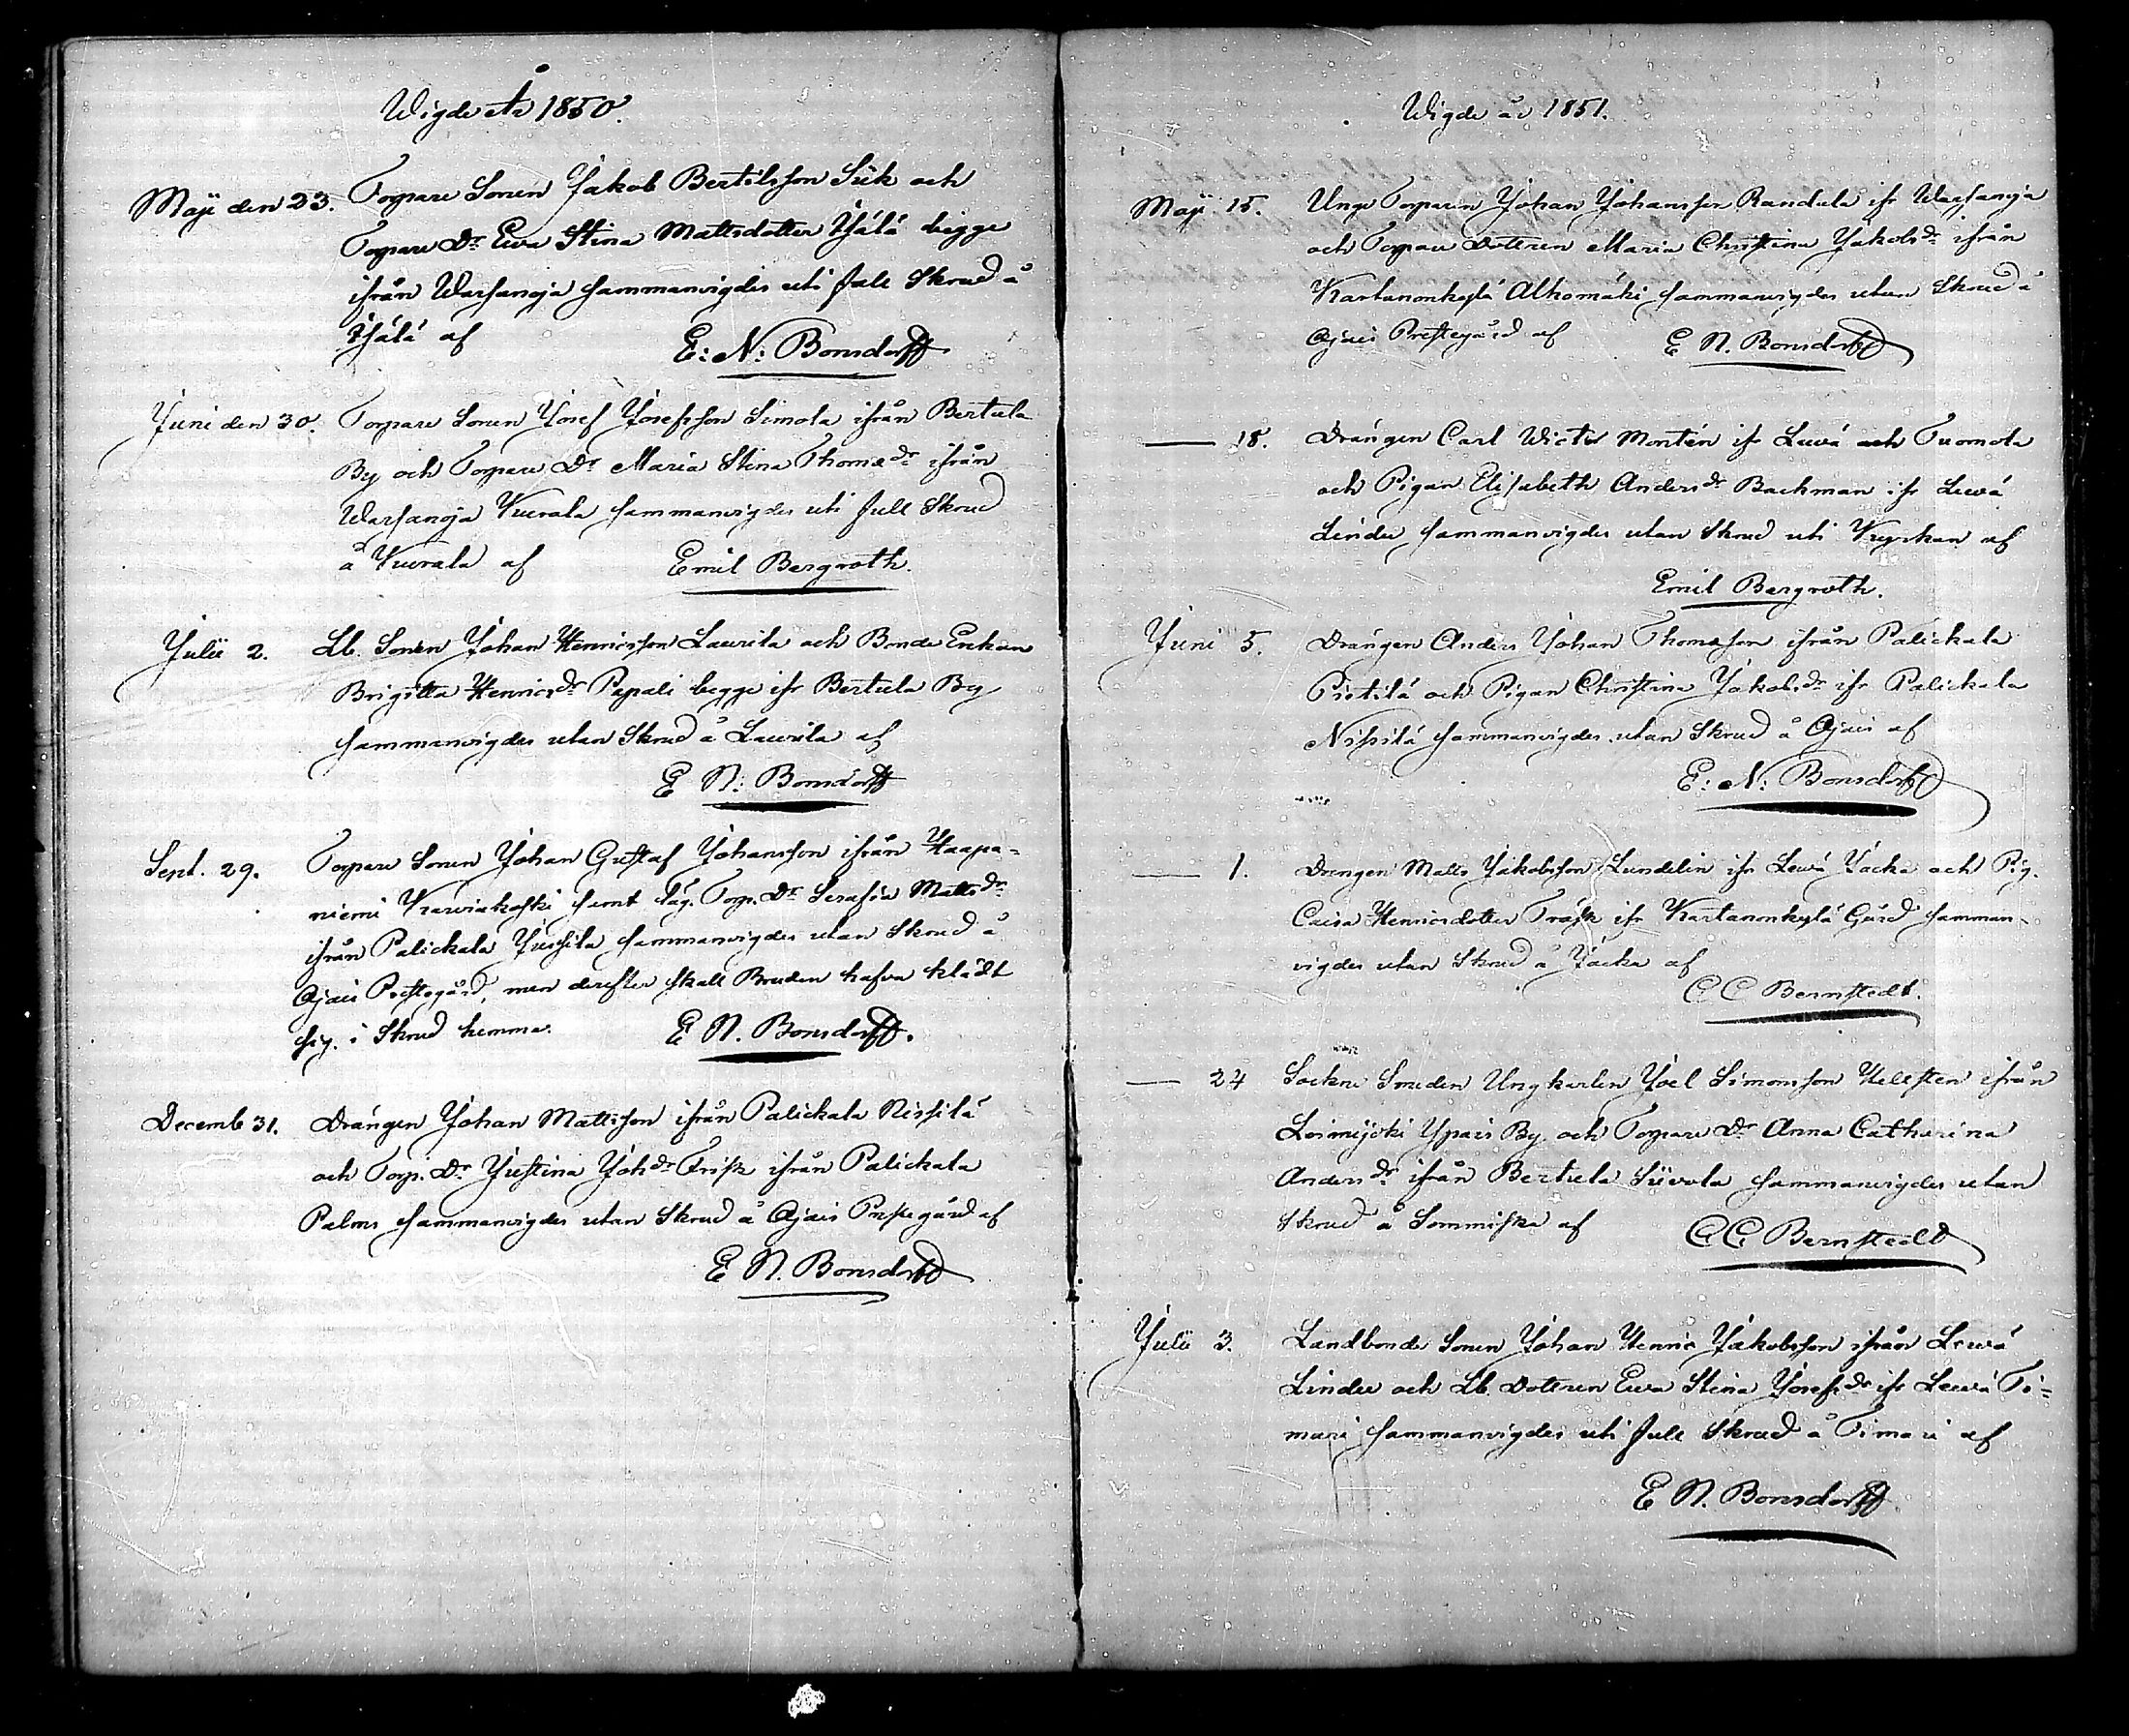 Wigde År 1850.
Maji den 23. Torpare Sonen Jakob Bertilsson Sük och
Torpare Dr Ewa Stina Mattsdotter begge
ifrån Warsanoja sammanvigdes uti full Skrud å
af E: N: Bonsdorff
Juni den 30. Torpare Sonen Josef Josefsson Simola ifrån Bertula
By och Torpare Dr Maria Stina Thomædr ifrån
Warsanoja Kuerala sammanvigdes uti full Skrud
å Kuerala af Emil Bergroth.
Julii 2. Lb. Sonen Johan Henricsson Laurila och Bonde Enkan
Brigitta Henricsdr Papali begge ifr Bertula By
sammanvigdes utan Skrud å Laurila af
E N: Bonsdorff
Sept. 29. Torpare Sonen Johan Gustaf Johansson ifrån Haapa=
niemi Karviakoski samt Torp. Dr Serafia Mattsdr
ifrån Palickala Jussila sammanvigdes utan Skrud å
Ojais Prestegård, men derefter skall Bruden hafva klädt
sig i Skrud hemma. E N. Bonsdorff.
Decemb 31. Drängen Johan Mattsson ifrån Palickala Nissilä
och Torp. Dr Justina Johdr Frisk ifrån Palickala
Palmu sammanvigdes utan Skrud å Ojais Prestegård af
E N. Bonsdorff
Wigde år 1851.
Maji 15. Unge Torparen Johan Johansson Randala ifr Warsanoja
och Torpare Dottren Maria Christina Jakobsdr ifrån
Kartanonkylä Alhomäki sammanvigdes utan Skrud å
Ojais Prestegård af E N. Bonsdorff
— 18. Drängen Carl Wictor Montén ifr Lewä och Tuomola
och Pigan Elisabeth Andersdr Bachman ifr Lewä
Lindu sammanvigdes utan Skrud uti Kyrckan af
Emil Bergroth.
Juni 5. Drängen Anders Johan Thomasson ifrån Palickala
Pietilä och Pigan Christina Jakobsdr ifr Palickala
Nissilä sammanvigdes utan Skrud å Ojais af
E: N: Bonsdorff
— 1. Drengen Matts Jakobsson Lundelin ifr Lewä Jacka och Pig.
Caisa Henricsdotter Träsk ifr Kartanonkylä Gård samman-
vigdes utan Skrud å Jacka af
C C Bernstedt.
— 24 Sockne Smeden Ungkarlen Joel Simonsson Hellsten ifrån
Loimijocki Ypais By och Torpare Dr Anna Catharina
Andersdr ifrån Bertula Süvola sammanvigdes utan
Skrud å Sommiska af C. C. Bernstedt
Julii 3. Landbonde Sonen Johan Henric Jakobsson ifrån Lewä
Lindu och Lb Dottren Ewa Stina Josefsdr ifr Lewä Ti=
mari sammanvigdes uti full Skrud å Timari af
E N. Bonsdorff